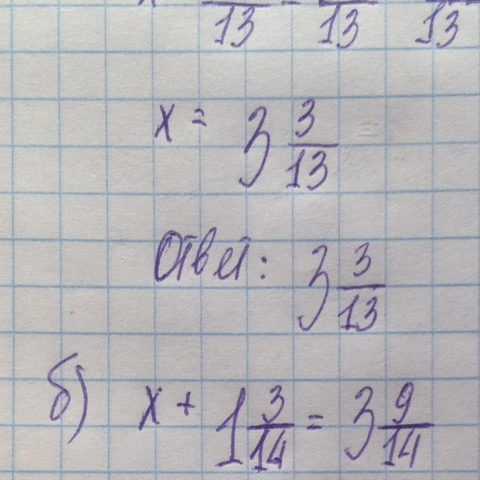 13 = 13 13
x = 3 3/13
Ответ: 3 3/13
б) x + 1 3/14 = 3 9/14